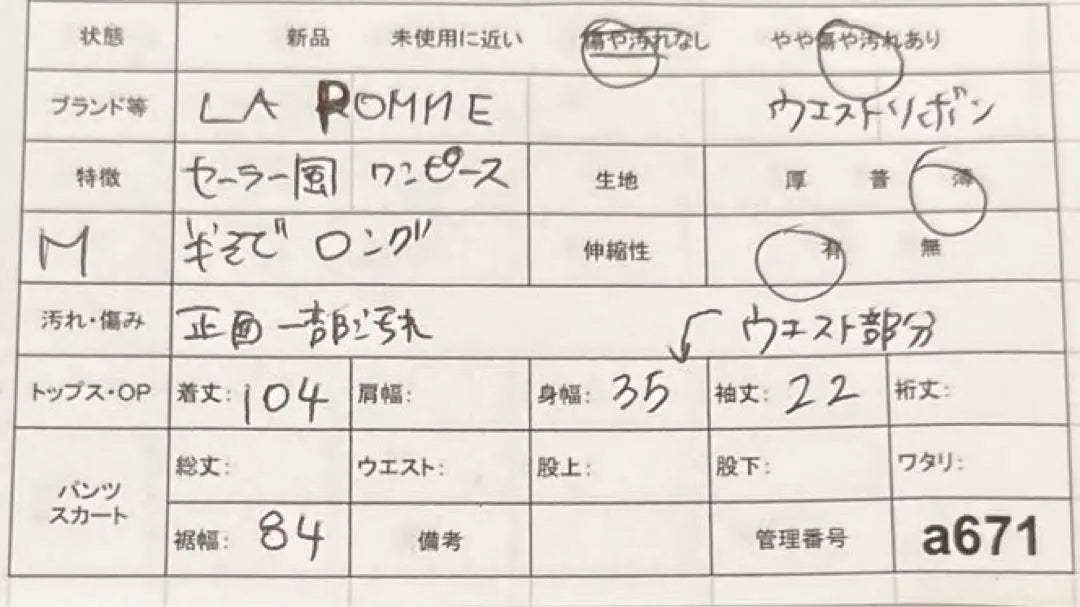 状態 新品 未使用に近い 傷や汚れなし やや傷や汚れあり
ブランド等 LA POMME ウエストリボン
特徴 セーラー風 ワンピース 生地 厚 普 薄
M 半そで ロング 伸縮性 有 無
汚れ・傷み 正面一部に汚れ ウエスト部分
トップス・OP 着丈: 104 肩幅: 身幅: 35 袖丈: 22 裄丈:
パンツ スカート 総丈: ウエスト: 股上: 股下: ワタリ:
裾幅: 84 備考 管理番号 a671